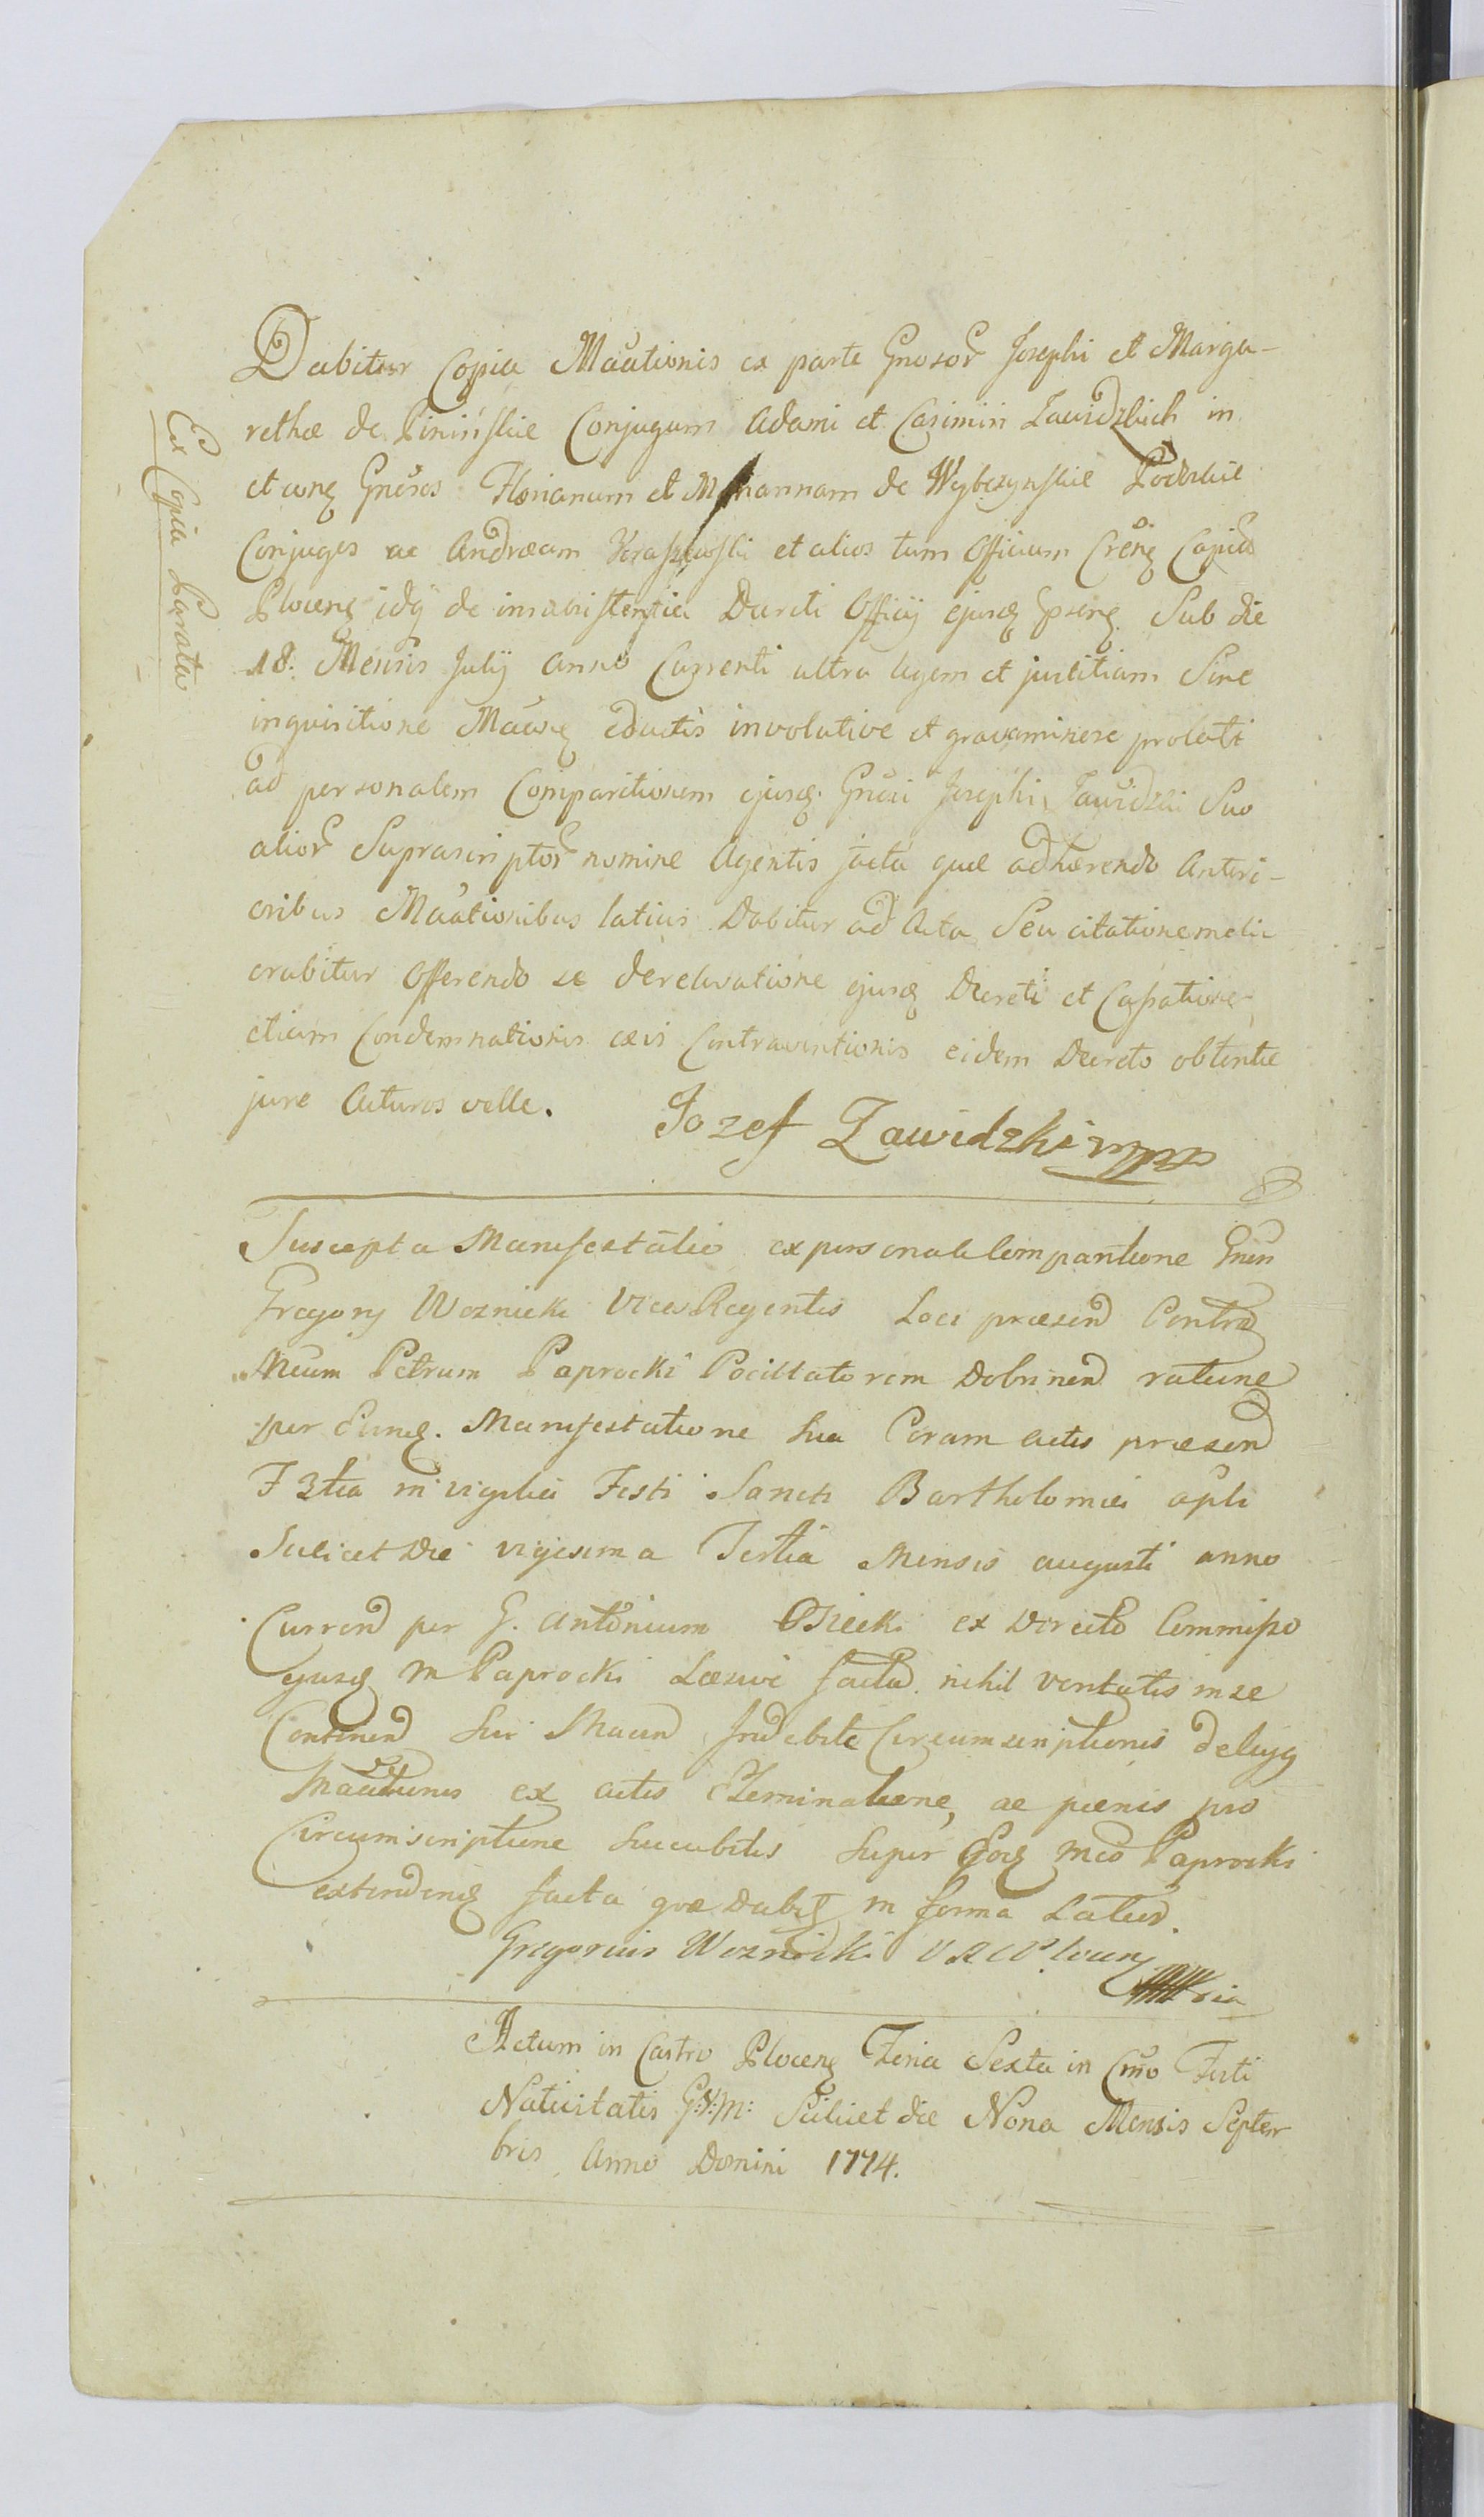 Ex Copia Parata
Dabitur Copia Mãationis ex parte Gnosor Josephi et Marga-
rethæ de Pinińskie Conjugum Adami et Casimiri Zawidzkich in
et cong Gnõsos Florianum et Mariannam de Wybczynskie Podolskie
Conjuges ac Andræam et alios tum Officium Creñg Capital
Ploceng idq de insubsistentia Dereti Officij ejusq pseng. Sub die
18. Mensis Julij anno Currenti ultra legem et justitiam Sine
inquisitione eductis involutive et gravaminose prolati
ad personalem Comparitionem ejusq. Gnosi Josephi Zawidzki Suo
alior Suprascriptor nomine Agentis facta quæ adhærendo Anteri-
oribus Mãationibus latius Dabitur ad Acta Seu citatione melio
orabitur Offerendo se de relevatione ejusq Decreti et Cassatione
etiam Condemnationis Contraventionis eidem Decreto obtentæ
jure Acturos velle.
Jozef Zawidzki mpp
Suscepta Manifestatio ex personali Comparitione Gnosi
Gregorij Woznicki Vices Regentis Loci præsend Contra
Mcum Petrum Paprocki Pocillatorem Dobrinen ratione
per Eunq. Manifestatione sua Coram actis præsend
F 3tia in vigilia Festi Sancti Bartholomæi apli
Scilicet Die vigesima Tertia Mensis augusti anno
Currend per G. Antonium Osiecki ex Directo Commisso
ejusq M Paprocki Læsive facta nihil veritatis in se
Continend sui Indebite Circumscriptionis
Maationis ex actis Eleminatione, ac pænis pro
Circumscriptione Succubitis Super Eoq Mco Paprocki
extendenq facta quæ Dabitq in forma Latius.
Gregorius Woznicki V R C Plocenq
Actum in Castro Ploceng Feria Sexta in Cr̃no Festi
Nativitatis G:V:M: Scilicet die Nona Mensis Septem
bris Anno Domini 1774.